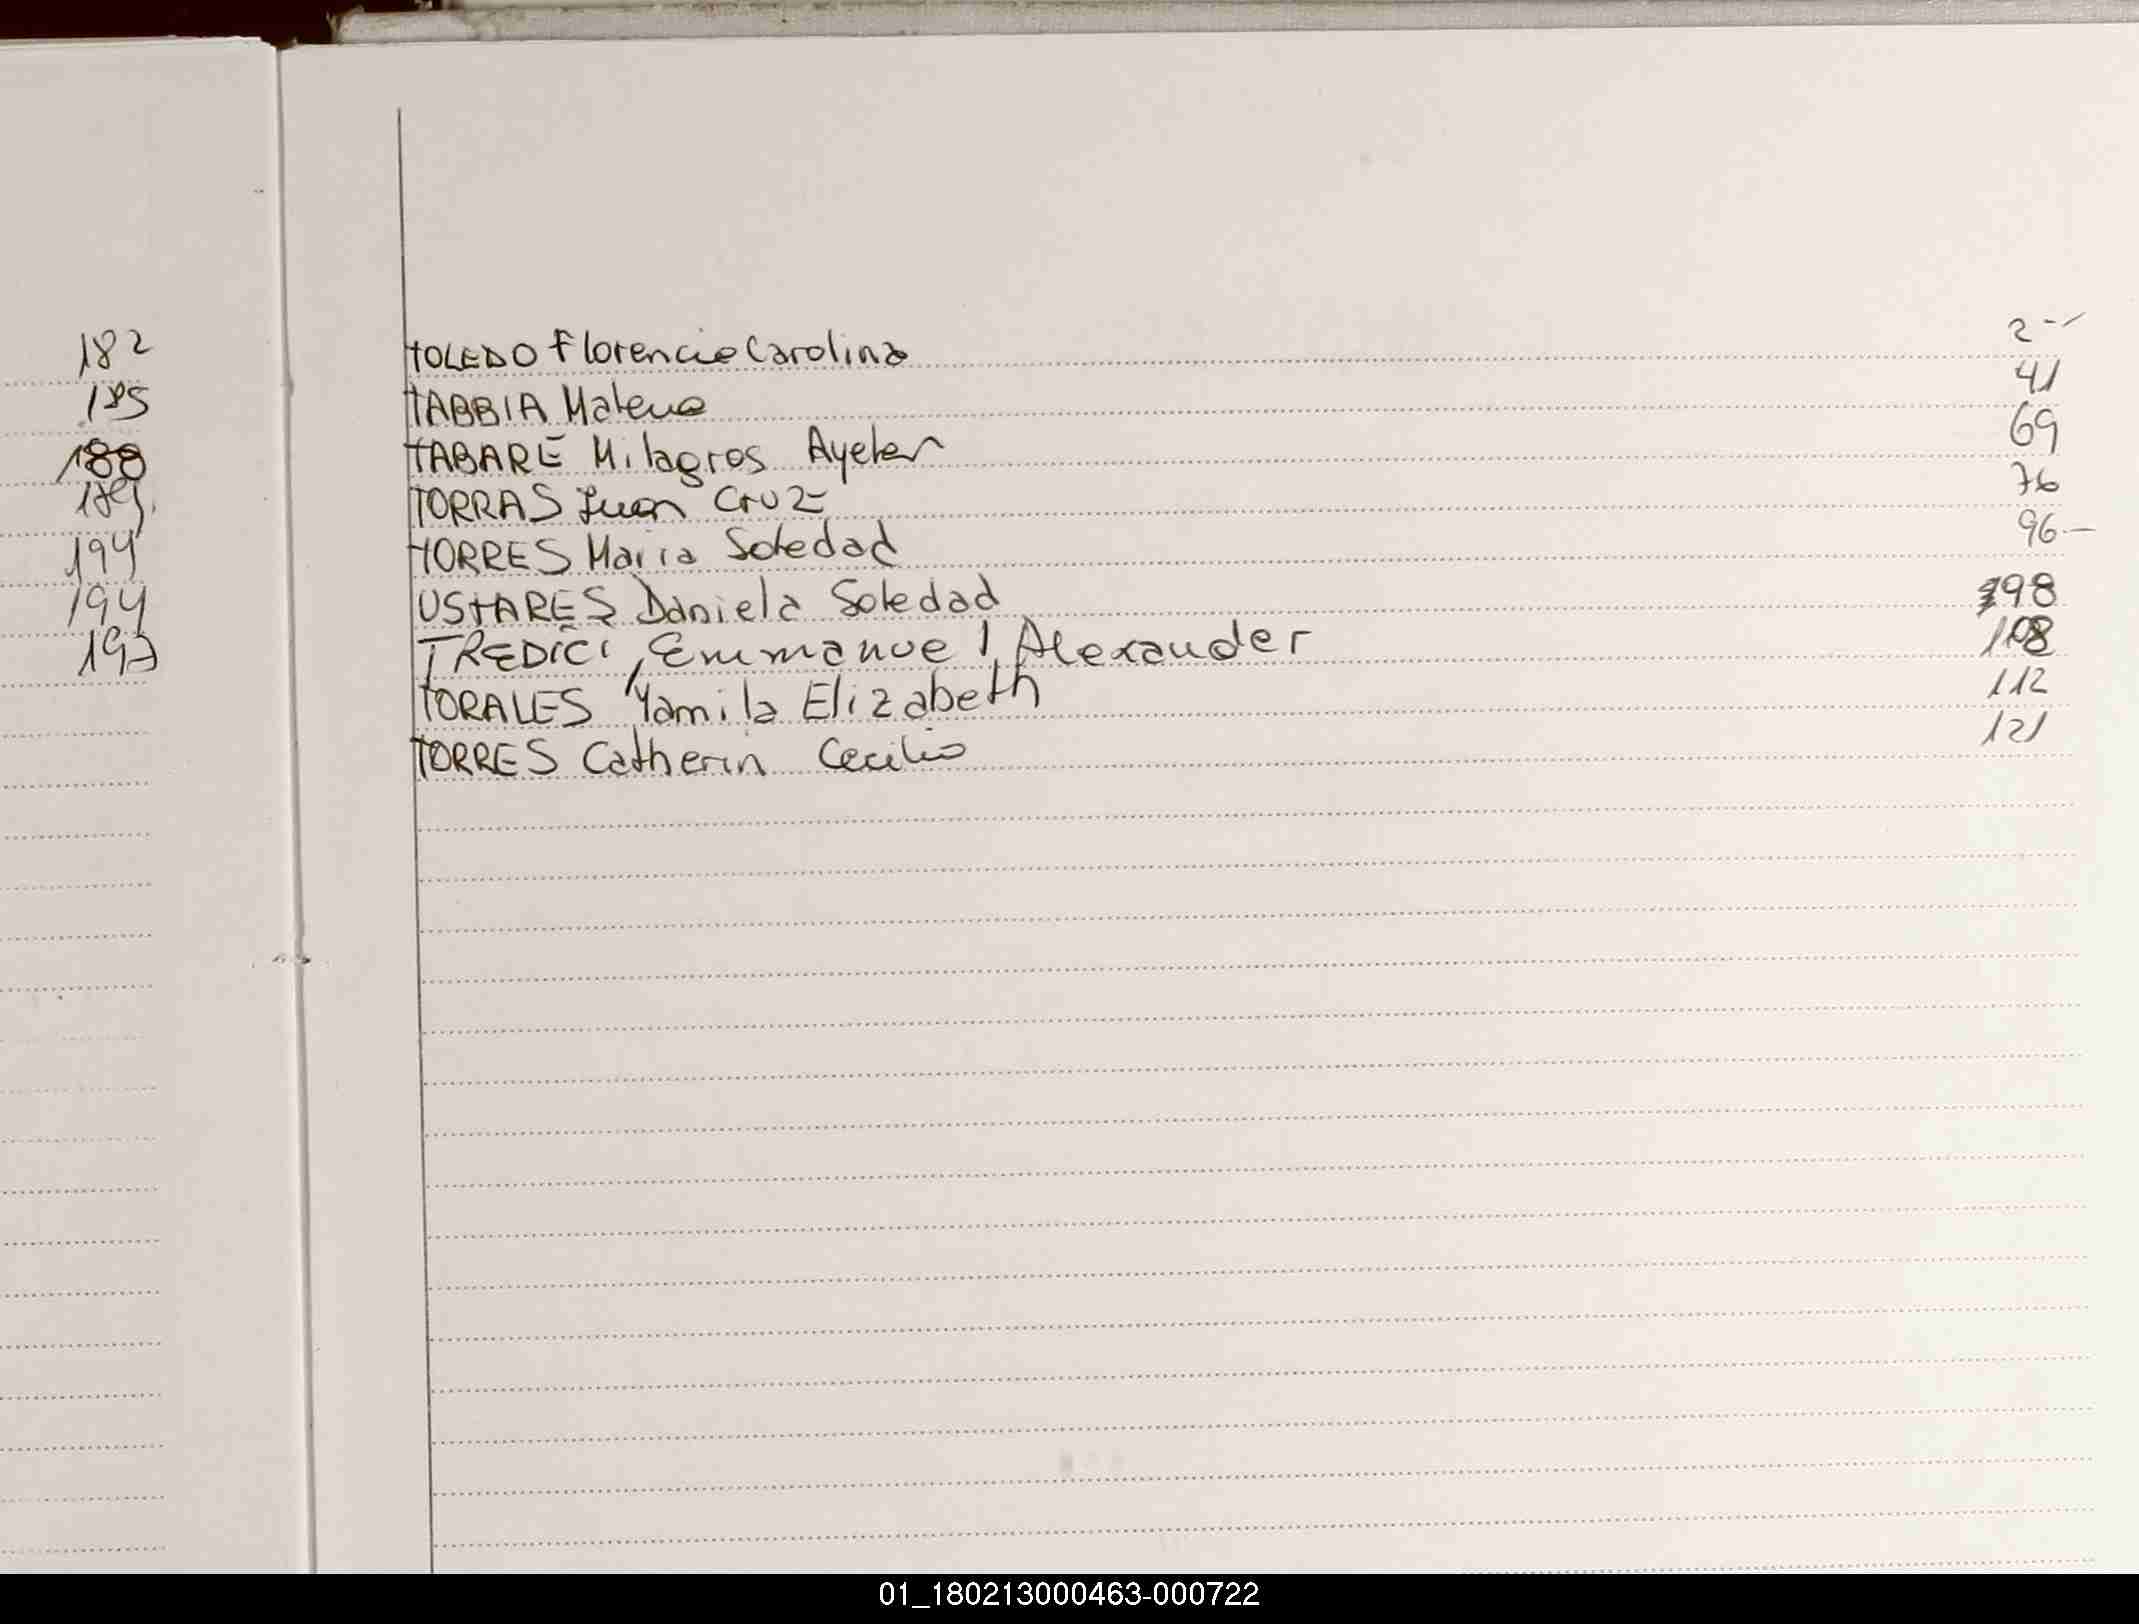 182
185
188
189
194
194
197
TOLEDO Florencia Carolina 2
TABBIA Mateus 41
TABARÉ Milagros Ayelen 69
TORRAS Juan Cruz 76
TORRES Maria Soledad 96
USTARES Daniela Soledad 98
TREDICI, Emmanuel Alexander 108
TORALES Yamila Elizabeth 112
TORRES Catherin Cecilia 121
01_180213000463-000722